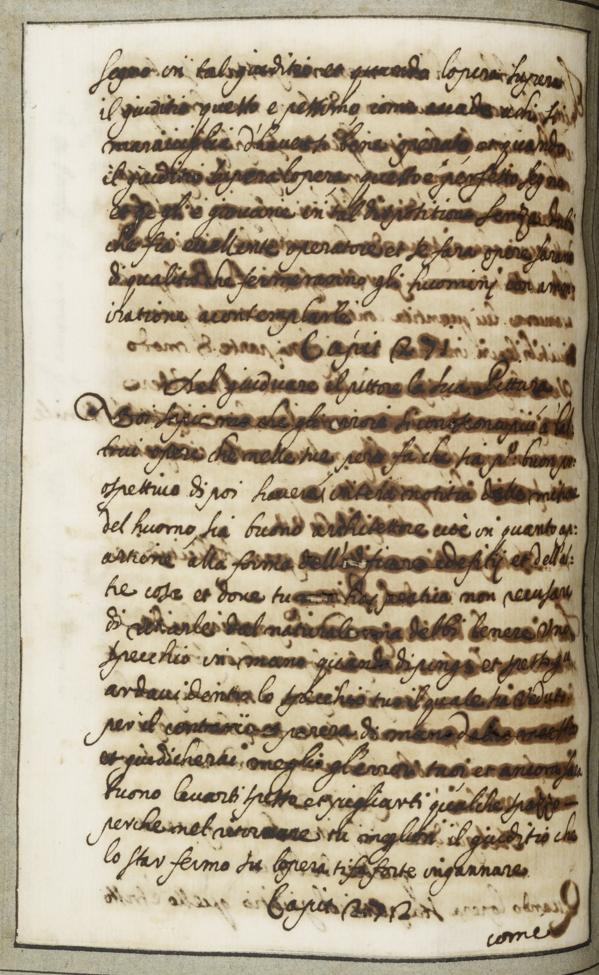 segno in tal giuditio et quando l'opera supera
il giuditio questo e pessimo come accade a chi si
maraviglia d'havere si bene operato et quando
il giuditio supera lopera questo e perfetto segno
et se gli e giovane in tal dispositione senza dubi
che fia excellente operatore et se fara opere saranno
di qualita che fermeranno gli huomini con amm
iratione a contemplarle
Capit 271
Del giudicare il pittore la sua Pittura
Noi sapiamo che gli errori si conoscono piu a l'al
trui opere che nelle sue pero fa che sia p.º buon pr
ospettivo di poi haverai intera notitia delle misure
del huomo sia buono architettore cioe in quanto ap:
artiene alla forma dell' edifitij et dell'al:
tre cose et dove tu hai pratica non recusare
di dal naturale ma debbi tenere uno
specchio in mano quando dipingi et spesso gu
ardavi dentro lo specchio tuo il quale fia veduto
per il contrario et parera di mano d'altro maestro
et giudicherai meglio gl'errori tuoi et ancora sara
buono levarti spesso et pigliarti qualche spasso
perche nel ritornare tu migliori il giuditio che
lo star fermo su lopera ti fa forte ingannare
Capit 272
come